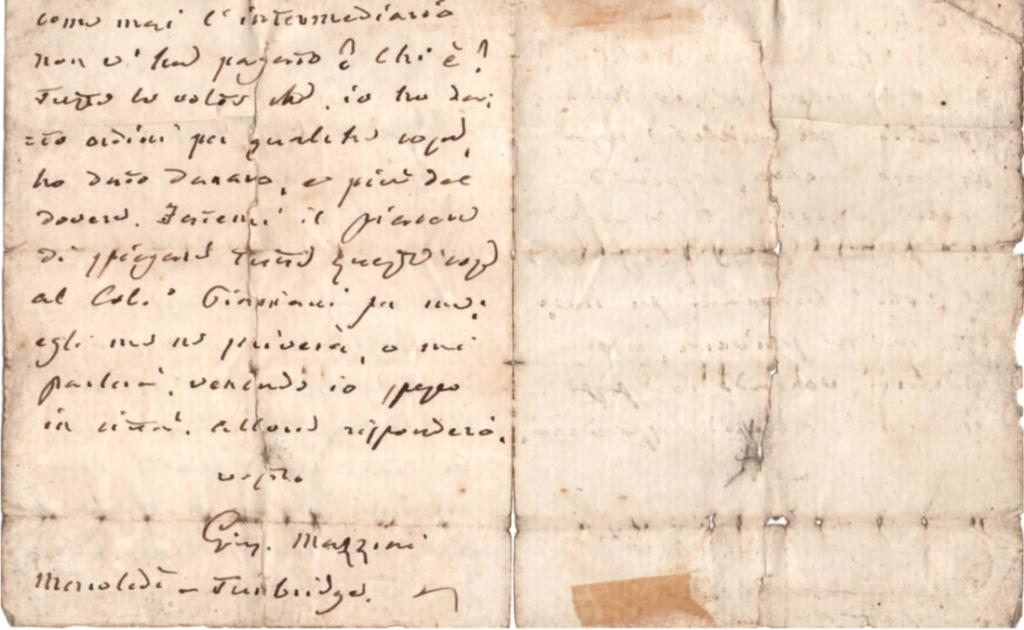 come mai l'intermediario
non v'ha pagato? Chi è?
Tutte le volte che io ho da:
=to ordini per qualche cosa,
ho dato danaro, e più del
dovere. Fatemi il piacere
di spiegare tutte queste cose
al Col.º Cipriani per me:
egli me ne scriverà, o mi
parlerà, venendo io spesso
in città. allora risponderò.
vostro
Gius. Mazzini
Mercoledì – Tunbridge.